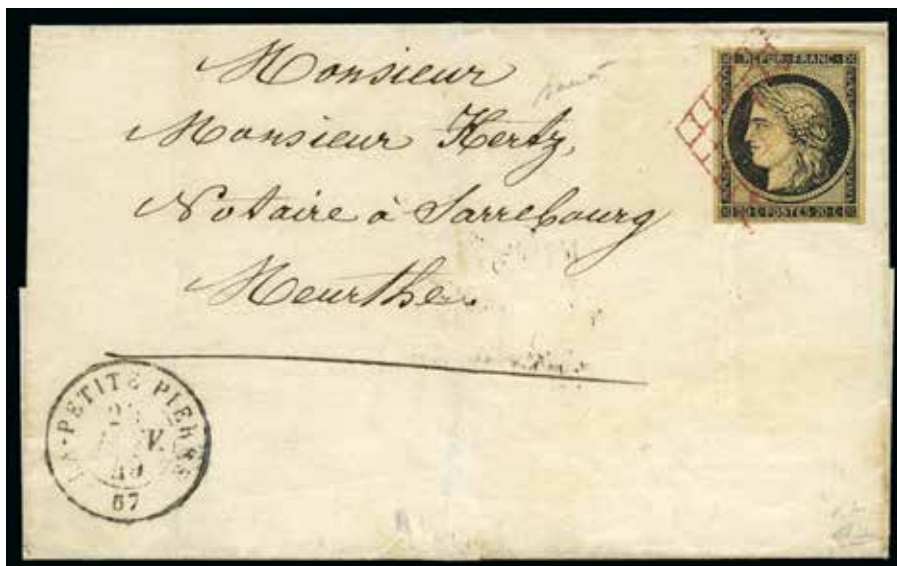 Monsieur
Monsieur Hertz,
Notaire à Sarrebourg
Meurthe.
REPUB. FRANC.
20 C POSTES 20 C
LA-PETITE PIERRE
67